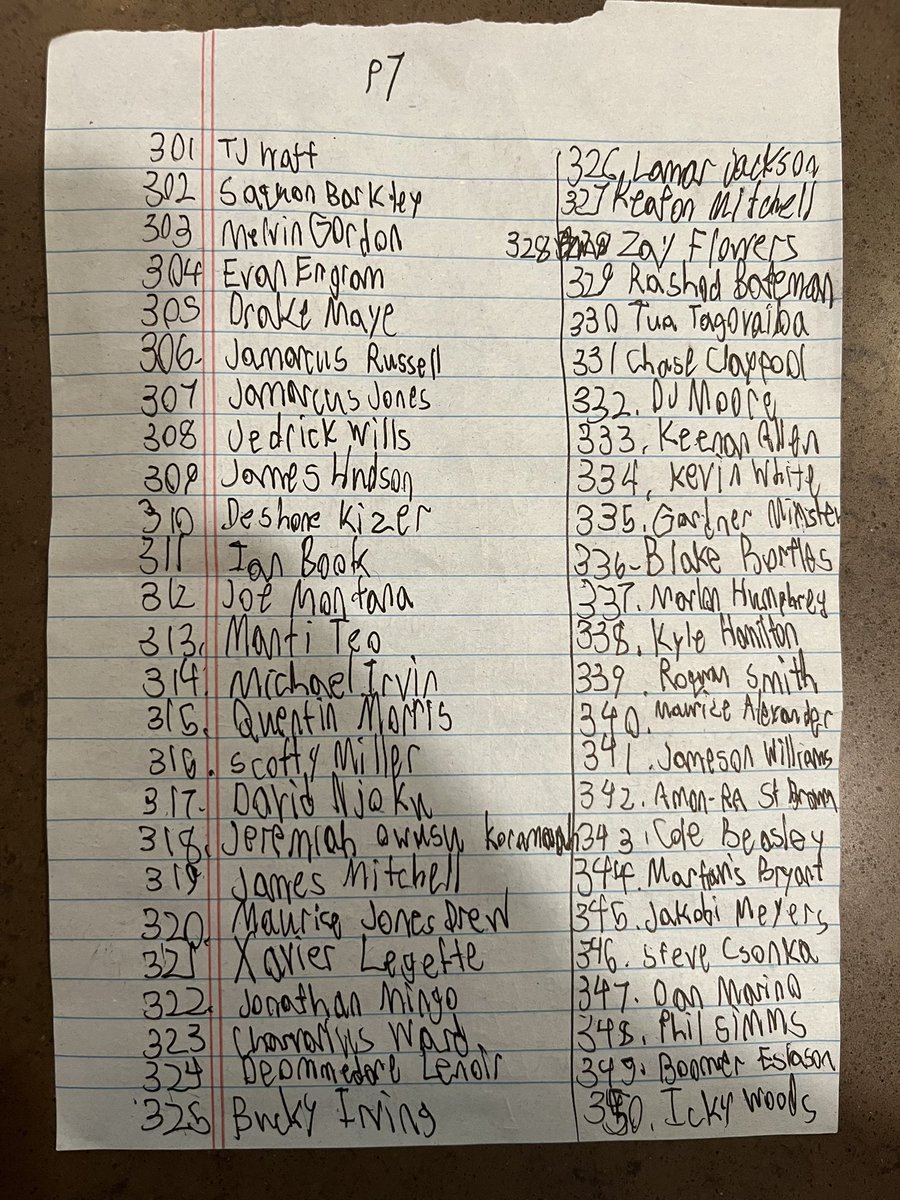 P7
301 TJ Watt
302 Saquon Barkley
303 Melvin Gordon
304 Evan Engram
305 Drake Maye
306. Jamarcus Russell
307 Jamarcus Jones
308 Jedrick Wills
309 James Hudson
310 Deshone Kizer
311 Ian Book
312 Joe Montana
313. Manti Teo
314. Michael Irvin
315. Quentin Morris
316. Scotty Miller
317. David Njoku
318. Jeremiah Owusu Koramoah
319 James Mitchell
320. Maurice Jones Drew
321 Xavier Legette
322. Jonathan Mingo
323 Charvarius Ward
324 Deommodore Lenoir
325 Bucky Irving
326. Lamar Jackson
327 Keaton Mitchell
328 Zay Flowers
329 Rashod Bateman
330 Tua Tagovailoa
331 Chase Claypool
332. DJ Moore
333. Keenan Allen
334. Kevin White
335. Gardner Minshew
336- Blake Bortles
337. Marlon Humphrey
338. Kyle Hamilton
339. Roquan Smith
340. Maurice Alexander
341. Jameson Williams
342. Amon-RA St Brown
343. Cole Beasley
344. Martavis Bryant
345. Jakobi Meyers
346. Steve Csonka
347. Dan Marino
348. Phil Simms
349. Boomer Esiason
350. Icky Woods